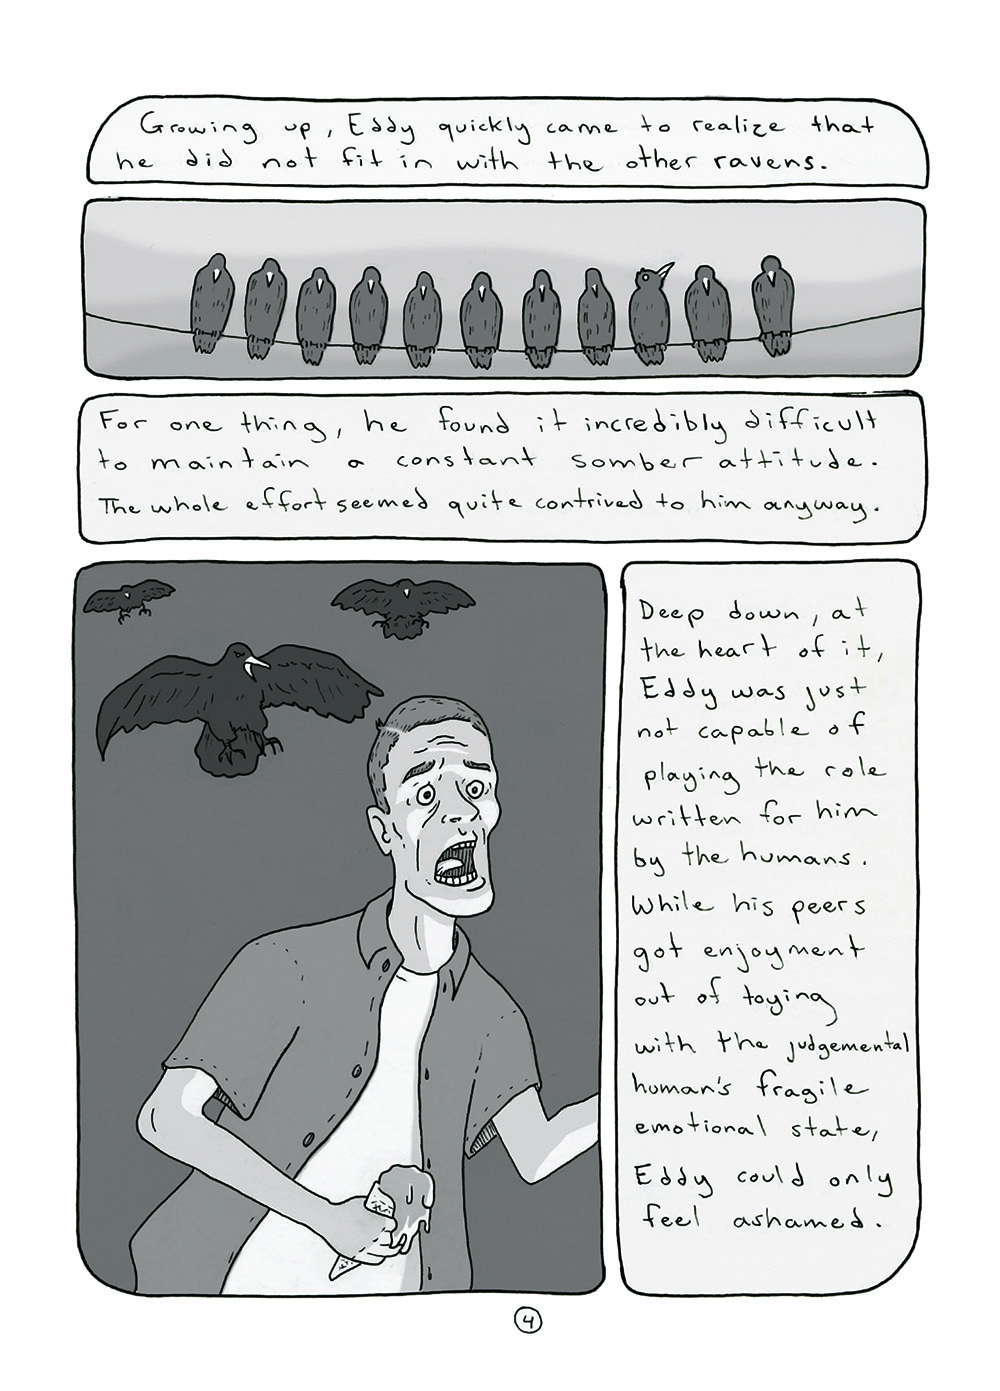 Growing up, Eddy quickly came to realize that
he did not fit in with the other ravens.
For one thing, he found it incredibly difficult
to maintain a constant somber attitude.
The whole effort seemed quite contrived to him anyway.
Deep down, at
the heart of it,
Eddy was just
not capable of
playing the role
written for him
by the humans.
While his peers
got enjoyment
out of toying
with the judgemental
human's fragile
emotional state,
Eddy could only
feel ashamed.
4